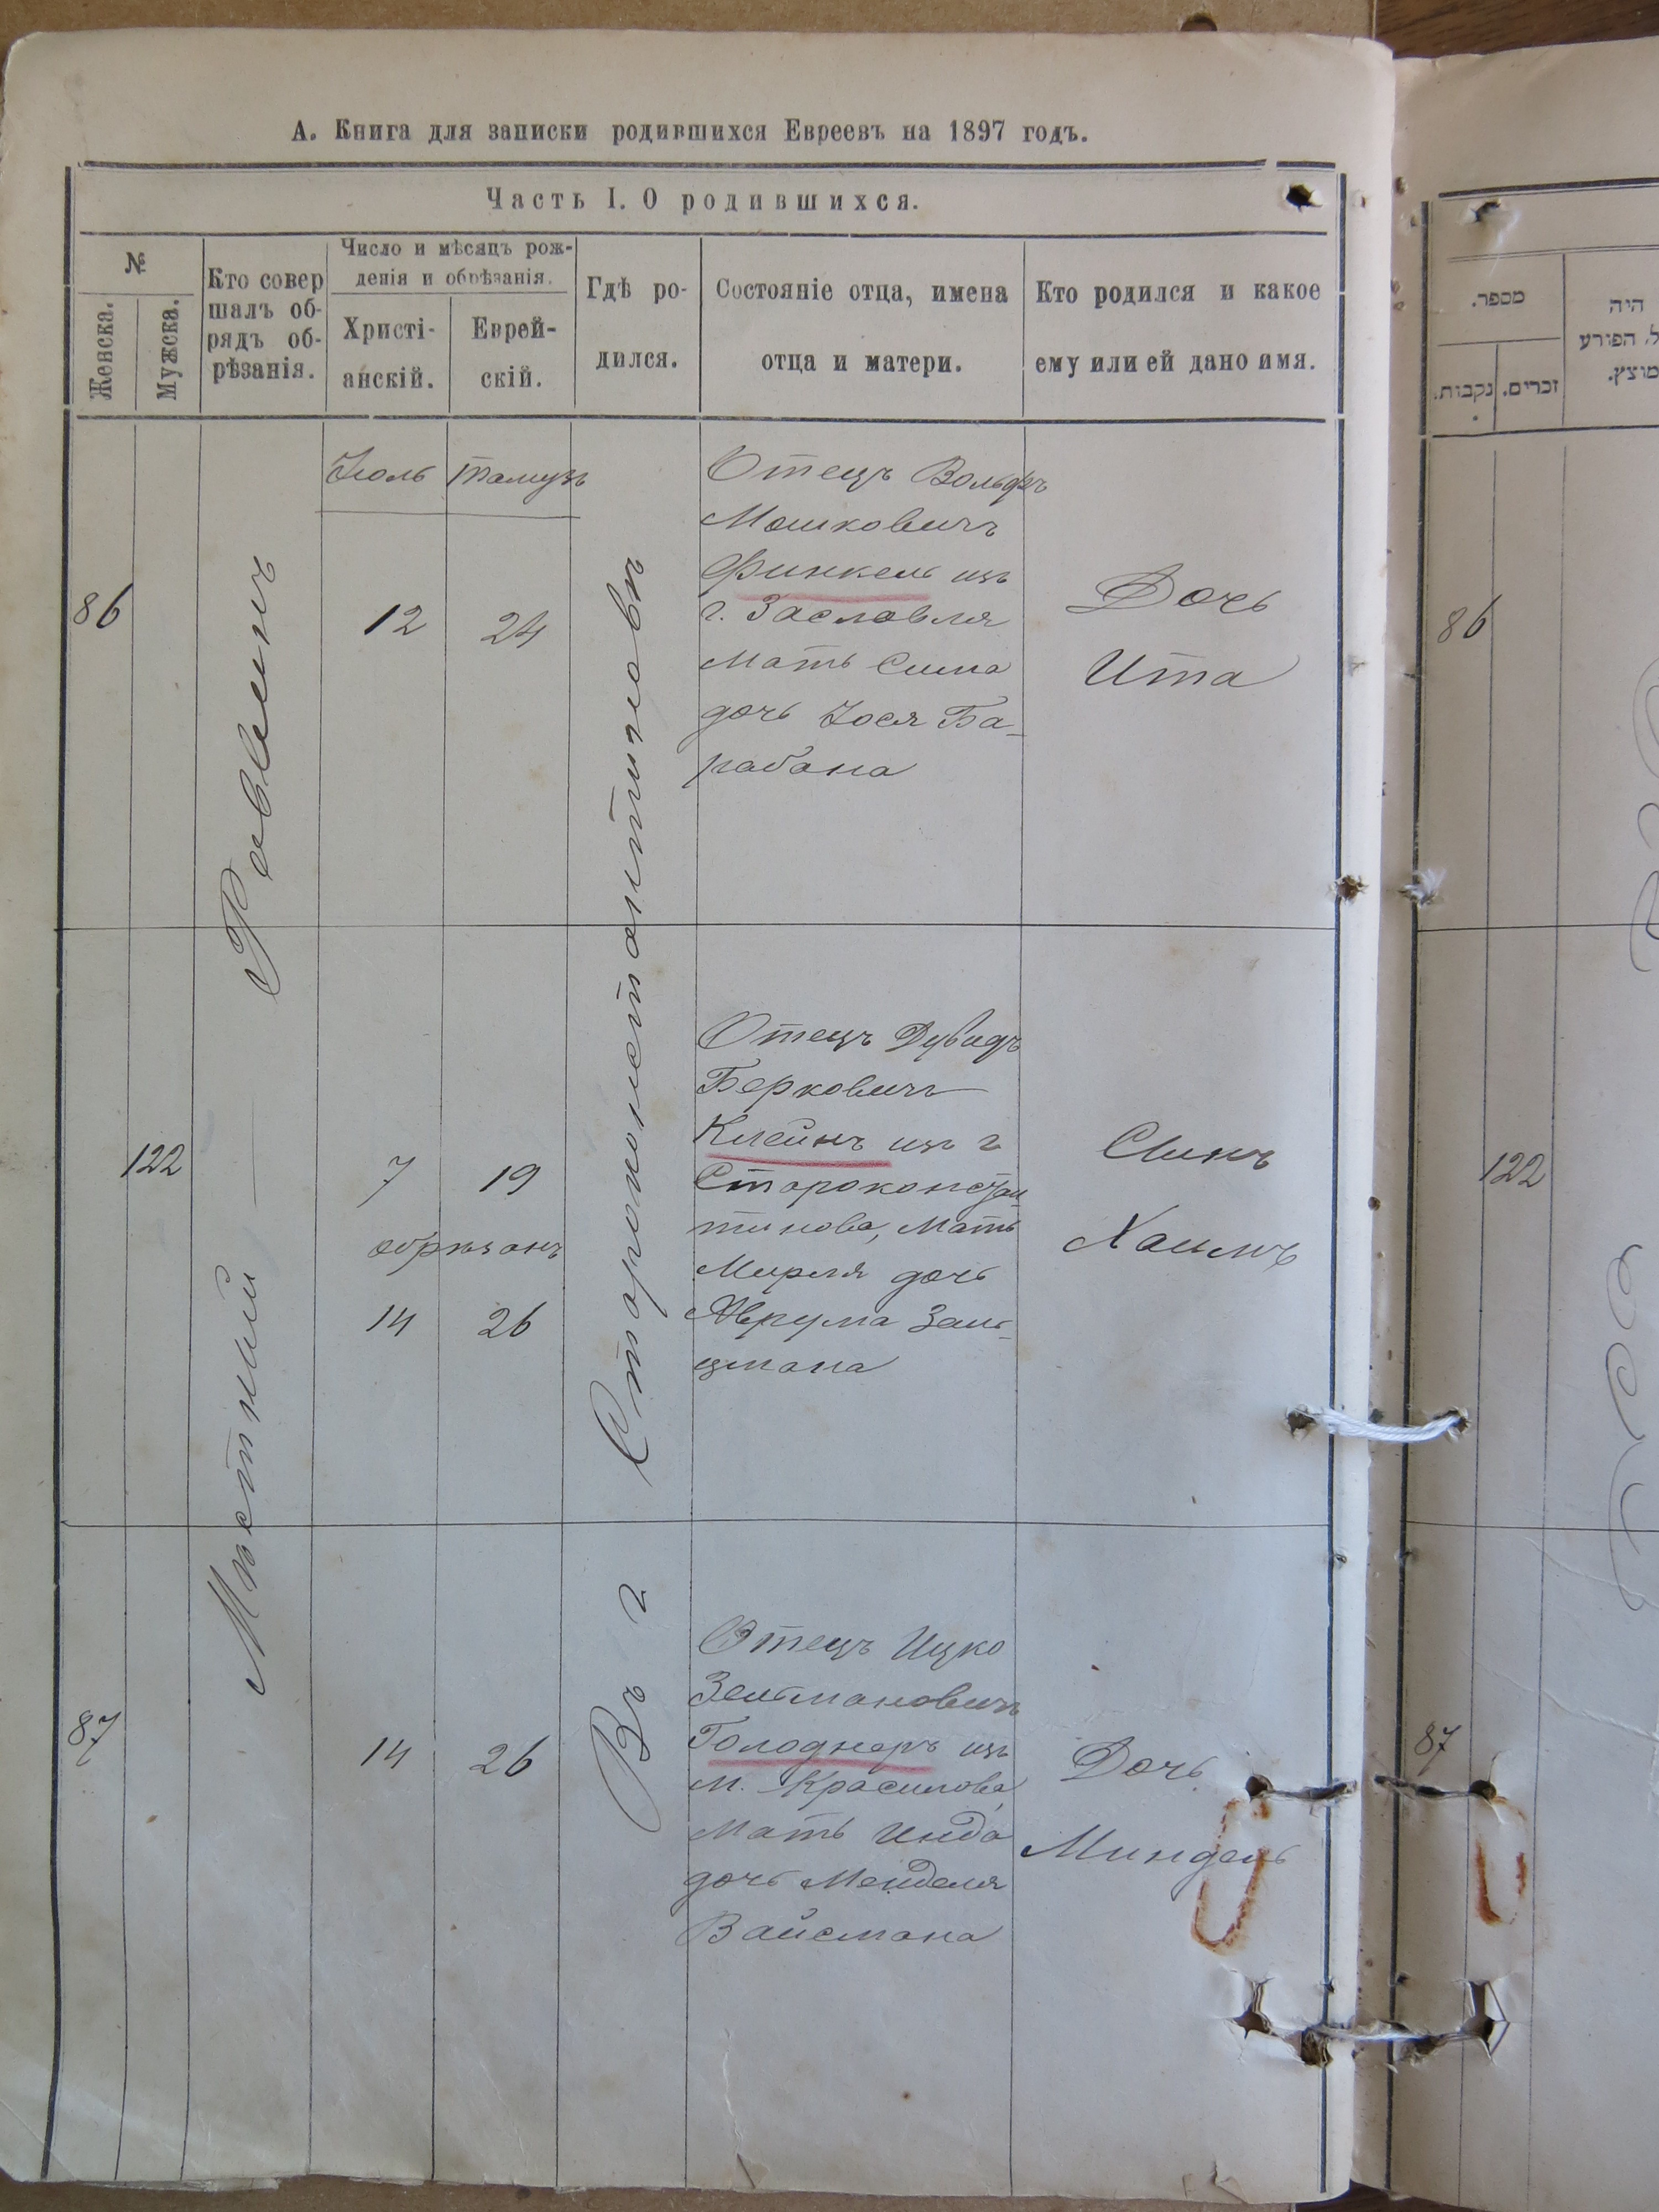 А. Книга для записки родившихся Евреевъ на 1897 годъ.
Часть I. О родившихся.
№
Женска.
Мужска.
Кто совер
шалъ об-
рядъ об-
рѣзанія.
Число и мѣсяцъ рож-
денія и обрѣзанія.
Христі-
анскій.
Еврей-
скій.
Гдѣ ро-
дился.
Состояніе отца, имена
отца и матери.
Кто родился и какое
ему или ей дано имя.
Мѣстный — Раввинъ
Въ г Староконстантиновѣ
Іюль
Тамузъ
86
12
24
Отецъ Вольфъ
Мошковичъ
Финкель изъ
г. Заславля
Мать Сима
дочь Іося Ба-
рабана
Дочь
Ита
122
7
19
обрѣзанъ
14
26
Отецъ Дувидъ
Берковичъ
Клейнъ изъ г
Староконстан
тинова, Мать
Мирля дочь
Аврума Заль-
цмана
Сынъ
Хаимъ
87
14
26
Отецъ Ицко
Зельмановичъ
Голоднеръ изъ
м. Красилова,
Мать Инда
дочь Менделя
Вайсмана
Дочь
Миндель
מספר.
נקבות.
זכרים.
היה
הפורע
מוצץ.
86
122
87